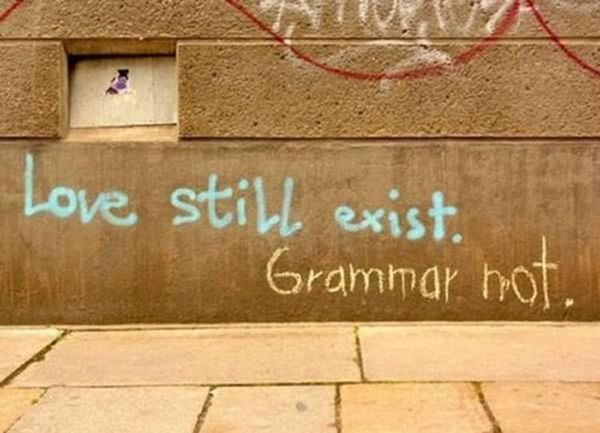 Love still exist.
Grammar not.